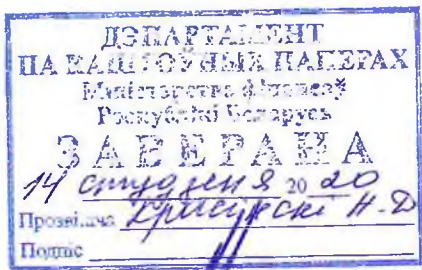 ДЭПАРТАМЕНТ
ПА КАШТОЎНЫХ ПАПЕРАХ
Міністэрства фінансаў
Рэспублікі Беларусь
ЗАВЕРАНА
14 студзеня 20 20
Прозвішча Н.Д
Подпіс